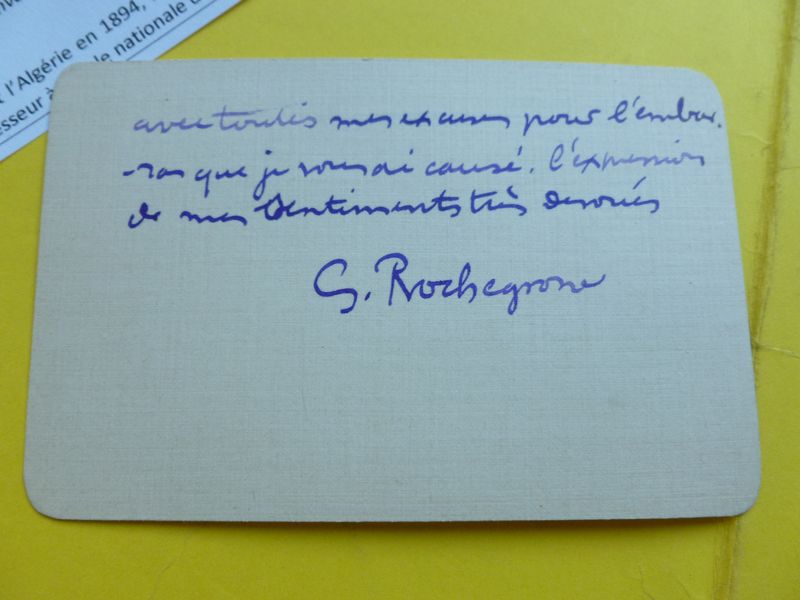 l'Algérie en 1894,
esseur à le nationale d
avec toutes mes excuses pour l'embar-
-ras que je vous ai causé. l'expression
de mes sentiments très dévoués
G. Rochegrosse